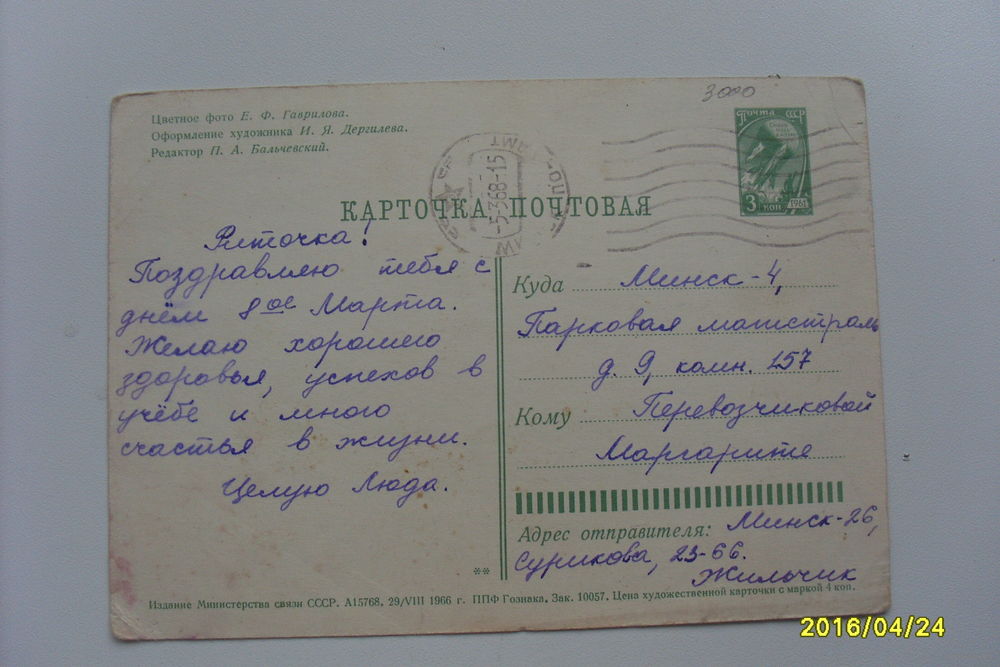 Цветное фото Е. Ф. Гаврилова.
Оформление художника И. Я. Дергилева.
Редактор П. А. Бальчевский.
3000
ПОЧТА СССР
3 коп
1961
-5-368-15
КАРТОЧКА ПОЧТОВАЯ
Риточка!
Поздравляю тебя с
днём 8ое Марта.
Желаю хорошего
здоровья, успехов в
учёбе и много
счастья в жизни.
Целую Люда.
Куда Минск-4,
Парковая магистраль
д. 9, комн. 157
Кому Перевозчиковой
Маргарите
Адрес отправителя: Минск-26,
Сурикова, 23-66.
Жильчик
**
Издание Министерства связи СССР. А15768. 29/VIII 1966 г. ППФ Гознака. Зак. 10057. Цена художественной карточки с маркой 4 коп.
2016/04/24